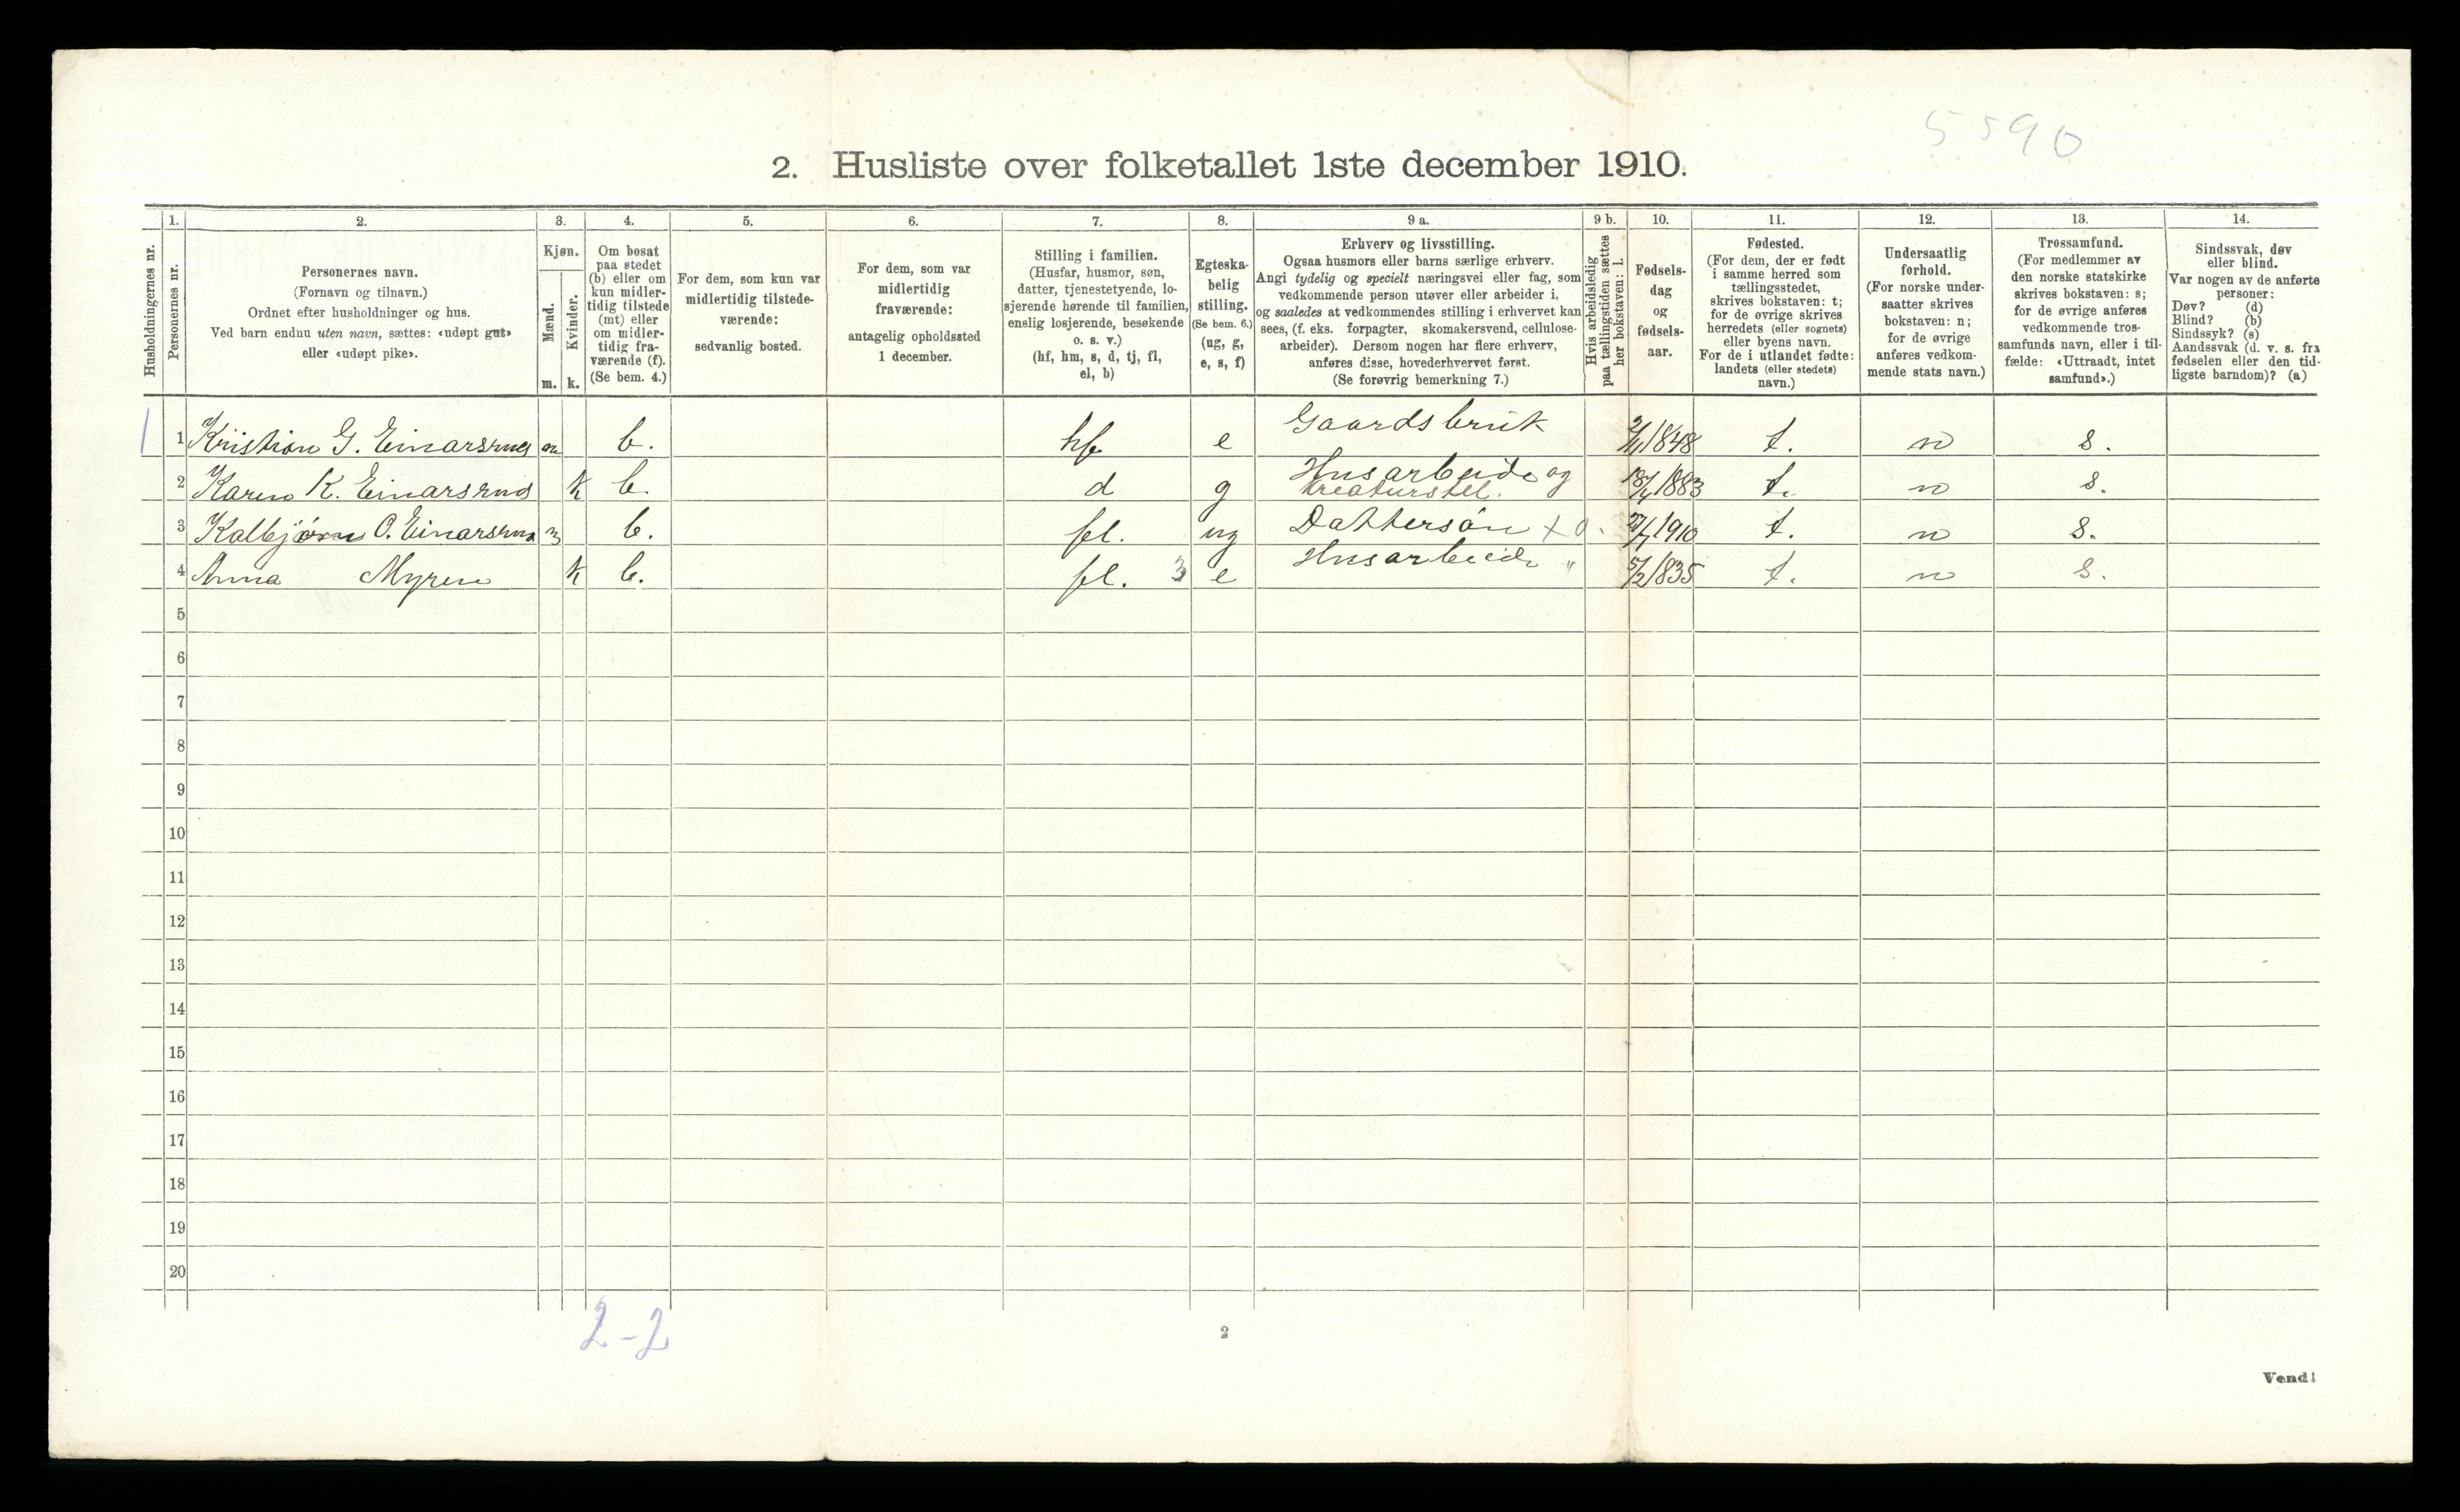 5590
2. Husliste over folketallet 1ste december 1910.
Husholdningernes nr.
1.
Personernes nr.
2.
Personernes navn.
(Fornavn og tilnavn.)
Ordnet efter husholdninger og hus.
Ved barn endnu uten navn, sættes: «udøpt gut»
eller «udøpt pike».
3.
Kjøn.
Mænd.
m.
Kvinder.
k.
4.
Om bosat
paa stedet
(b) eller om
kun midler-
tidig tilstede
(mt) eller
om midler-
tidig fra-
værende (f).
(Se bem. 4.)
5.
For dem, som kun var
midlertidig tilstede-
værende:
sedvanlig bosted.
6.
For dem, som var
midlertidig
fraværende:
antagelig opholdssted
1 december.
7.
Stilling i familien.
(Husfar, husmor, søn,
datter, tjenestetyende, lo-
sjerende hørende til familien,
enslig losjerende, besøkende
o. s. v.)
(hf, hm, s, d, tj, fl,
el, b)
8.
Egteska-
belig
stilling.
(Se bem. 6.)
(ug, g,
e, s, f)
9 a.
Erhverv og livsstilling.
Ogsaa husmors eller barns særlige erhverv.
Angi tydelig og specielt næringsvei eller fag, som
vedkommende person utøver eller arbeider i,
og saaledes at vedkommendes stilling i erhvervet kan
sees, (f. eks. forpagter, skomakersvend, cellulose-
arbeider). Dersom nogen har flere erhverv,
anføres disse, hovederhvervet først.
(Se forøvrig bemerkning 7.)
9 b.
Hvis arbeidsledig
paa tællingstiden sættes
her bokstaven: l.
10.
Fødsels-
dag
og
fødsels-
aar.
11.
Fødested.
(For dem, der er født
i samme herred som
tællingsstedet,
skrives bokstaven: t;
for de øvrige skrives
herredets (eller sognets)
eller byens navn.
For de i utlandet fødte:
landets (eller stedets)
navn.)
12.
Undersaatlig
forhold.
(For norske under-
saatter skrives
bokstaven: n;
for de øvrige
anføres vedkom-
mende stats navn.)
13.
Trossamfund.
(For medlemmer av
den norske statskirke
skrives bokstaven: s;
for de øvrige anføres
vedkommende tros-
samfunds navn, eller i til-
fælde: «Uttraadt, intet
samfund».)
14.
Sindssvak, døv
eller blind.
Var nogen av de anførte
personer:
Døv? (d)
Blind? (b)
Sindssyk? (s)
Aandssvak (d. v. s. fra
fødselen eller den tid-
ligste barndom)? (a)
1 Kristian G. Einarsrud m b. hf. e Gaardsbruk 2/11 1848 t. n s.
2 Karen K. Einarsrud k b. d g Husarbeide og kreaturstel. 18/4 1883 t. n s.
3 O. Einarsrud m b. fl. ug Dattersøn 1910 t. n s.
4 Anna Myren k b. fl. 3 e Husarbeide " 5/2 1835 t. n s.
5
6
7
8
9
10
11
12
13
14
15
16
17
18
19
20
2-2
2
Vend!